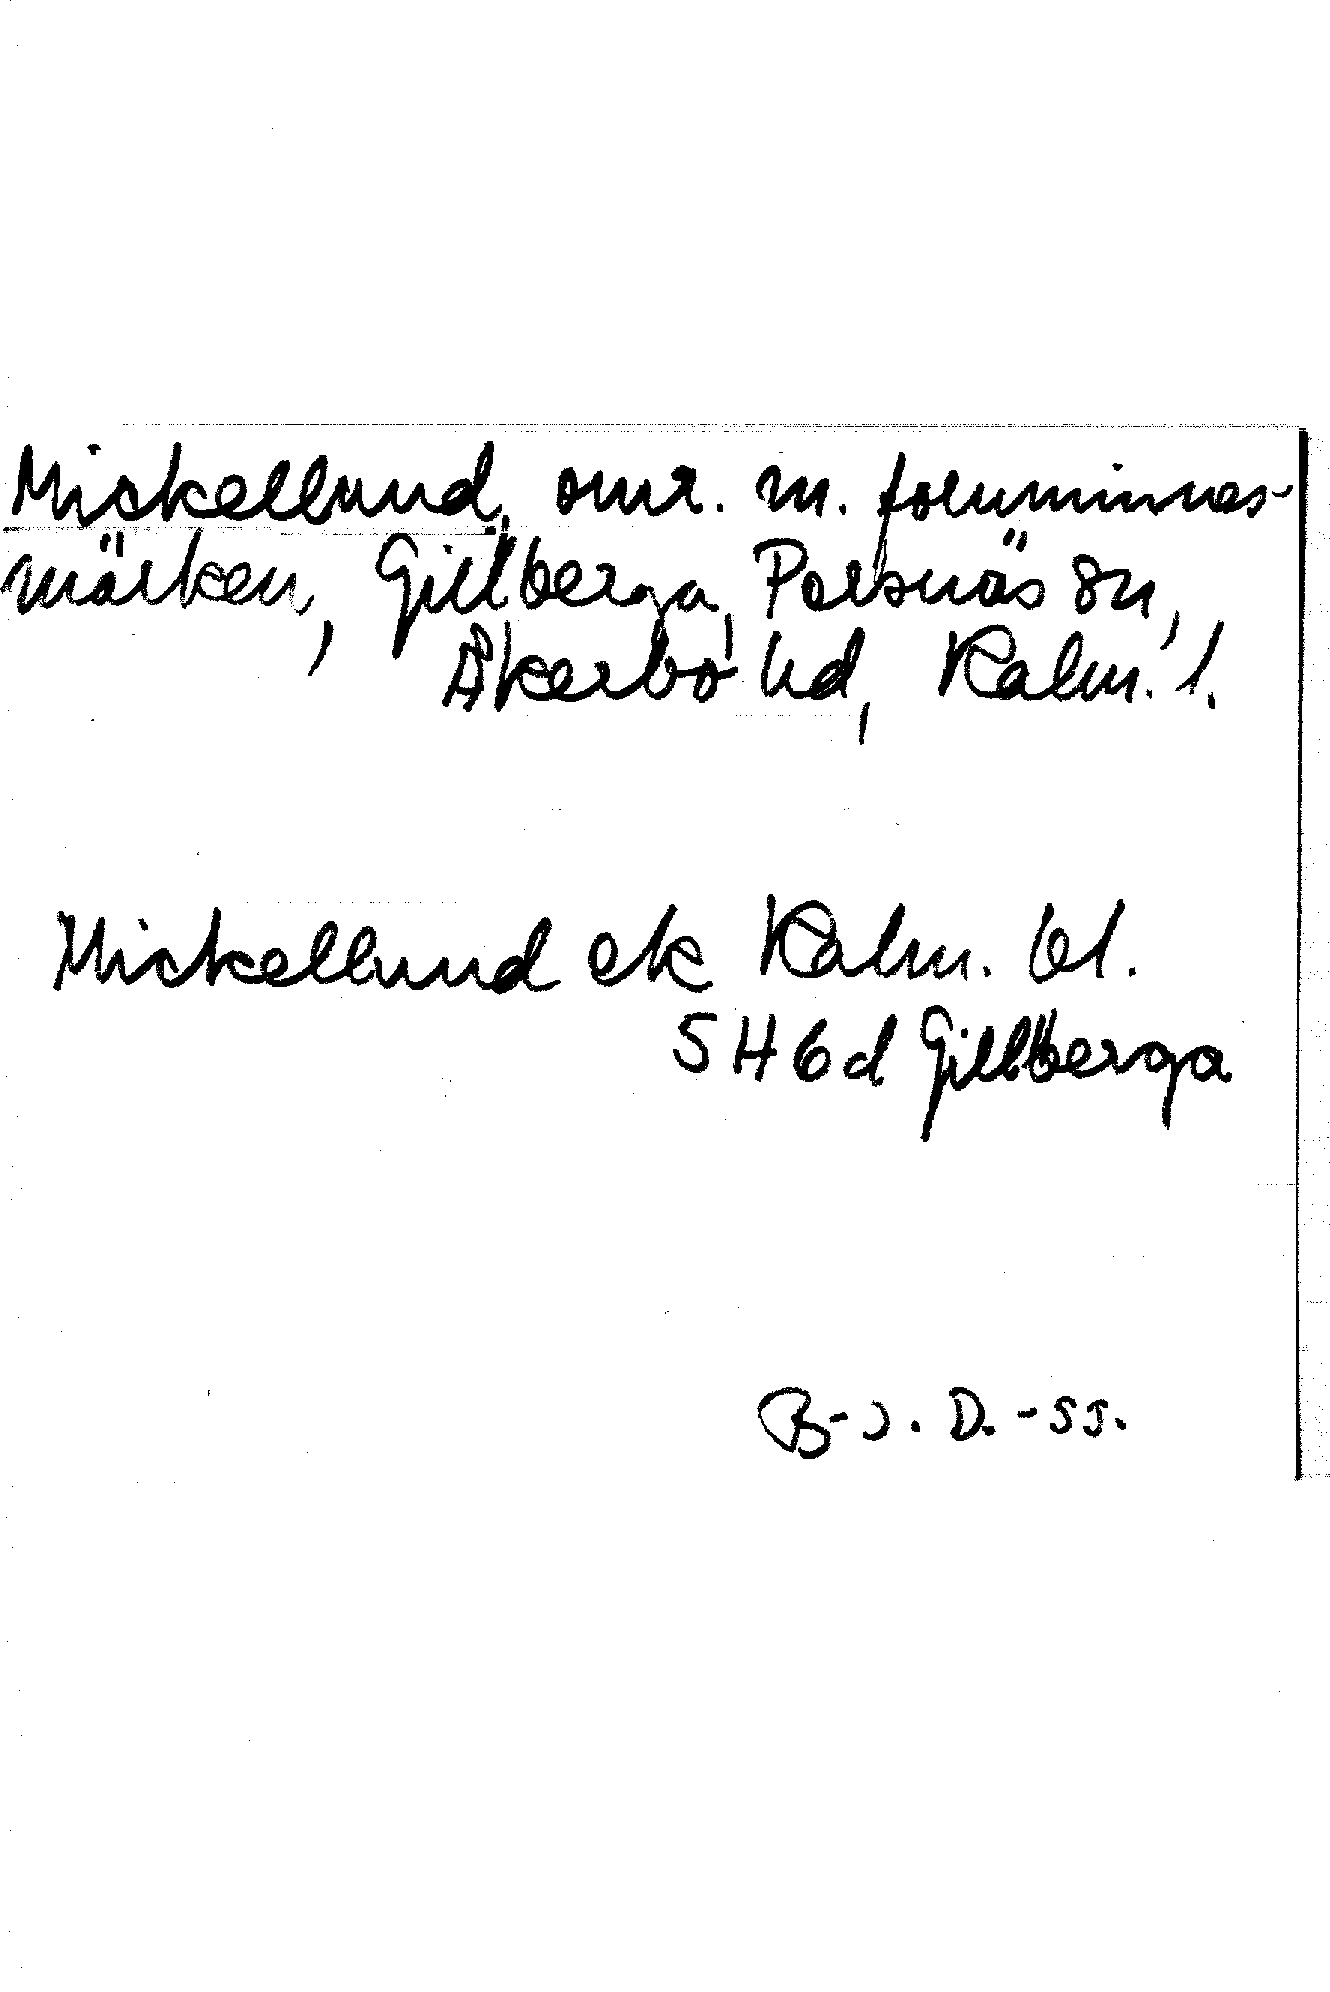 Mickellund, omr. m. fornminnes-
märken, Gillberga, Persnäs sn,
Åkerbo hd, Kalm. l.
Mickellund ek Kalm. bl.
5H6d Gillberga
B-J. D. -55.